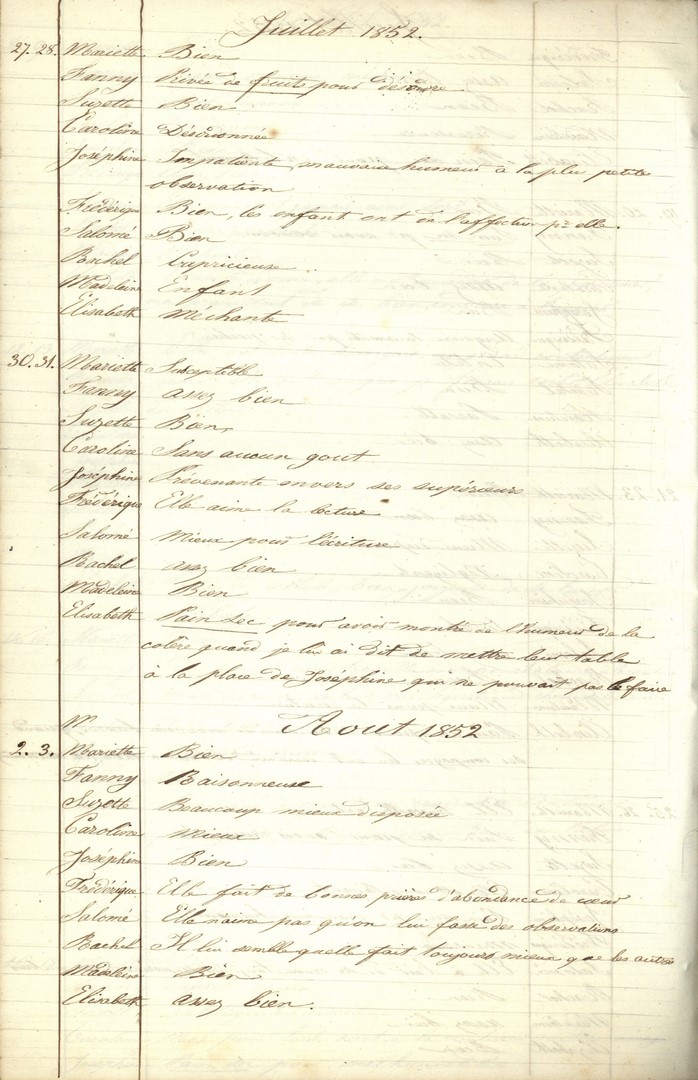 Juillet 1852.
27. 28. Mariette Bien
Fanny Privée de fruits pour désordre
Suzette Bien
Caroline Désordonnée
Joséphine Impatiente, mauvaise humeur à la plus petite
observation
Frédérique Bien, les enfant ont de l'affection pr elle.
Salomé Bien
Rachel Capricieuse.
Madeleine Enfant
Elisabeth Méchante
30. 31. Mariette Susceptible
Fanny assez bien
Suzette Bien,
Caroline Sans aucun gout
Joséphine Prévenante envers ses supérieurs
Frédérique Elle aime la lecture
Salomé Mieux pour l'écriture
Rachel assez bien
Madeleine Bien
Elisabeth Pain sec pour avoir montré de l'humeur de la
colère quand je lui ai dit de mettre leur table
à la place de Joséphine qui ne pouvait pas le faire
Aout 1852
2. 3. Mariette Bien
Fanny Raisonneuse
Suzette Beaucoup mieux disposée
Caroline Mieux
Joséphine Bien
Frédérique Elle fait de bonnes prières d'abondance de cœur
Salomé Elle n'aime pas qu'on lui fasse des observations
Rachel Il lui semble quelle fait toujours mieux que les autres
Madeleine Bien
Elisabeth assez bien.